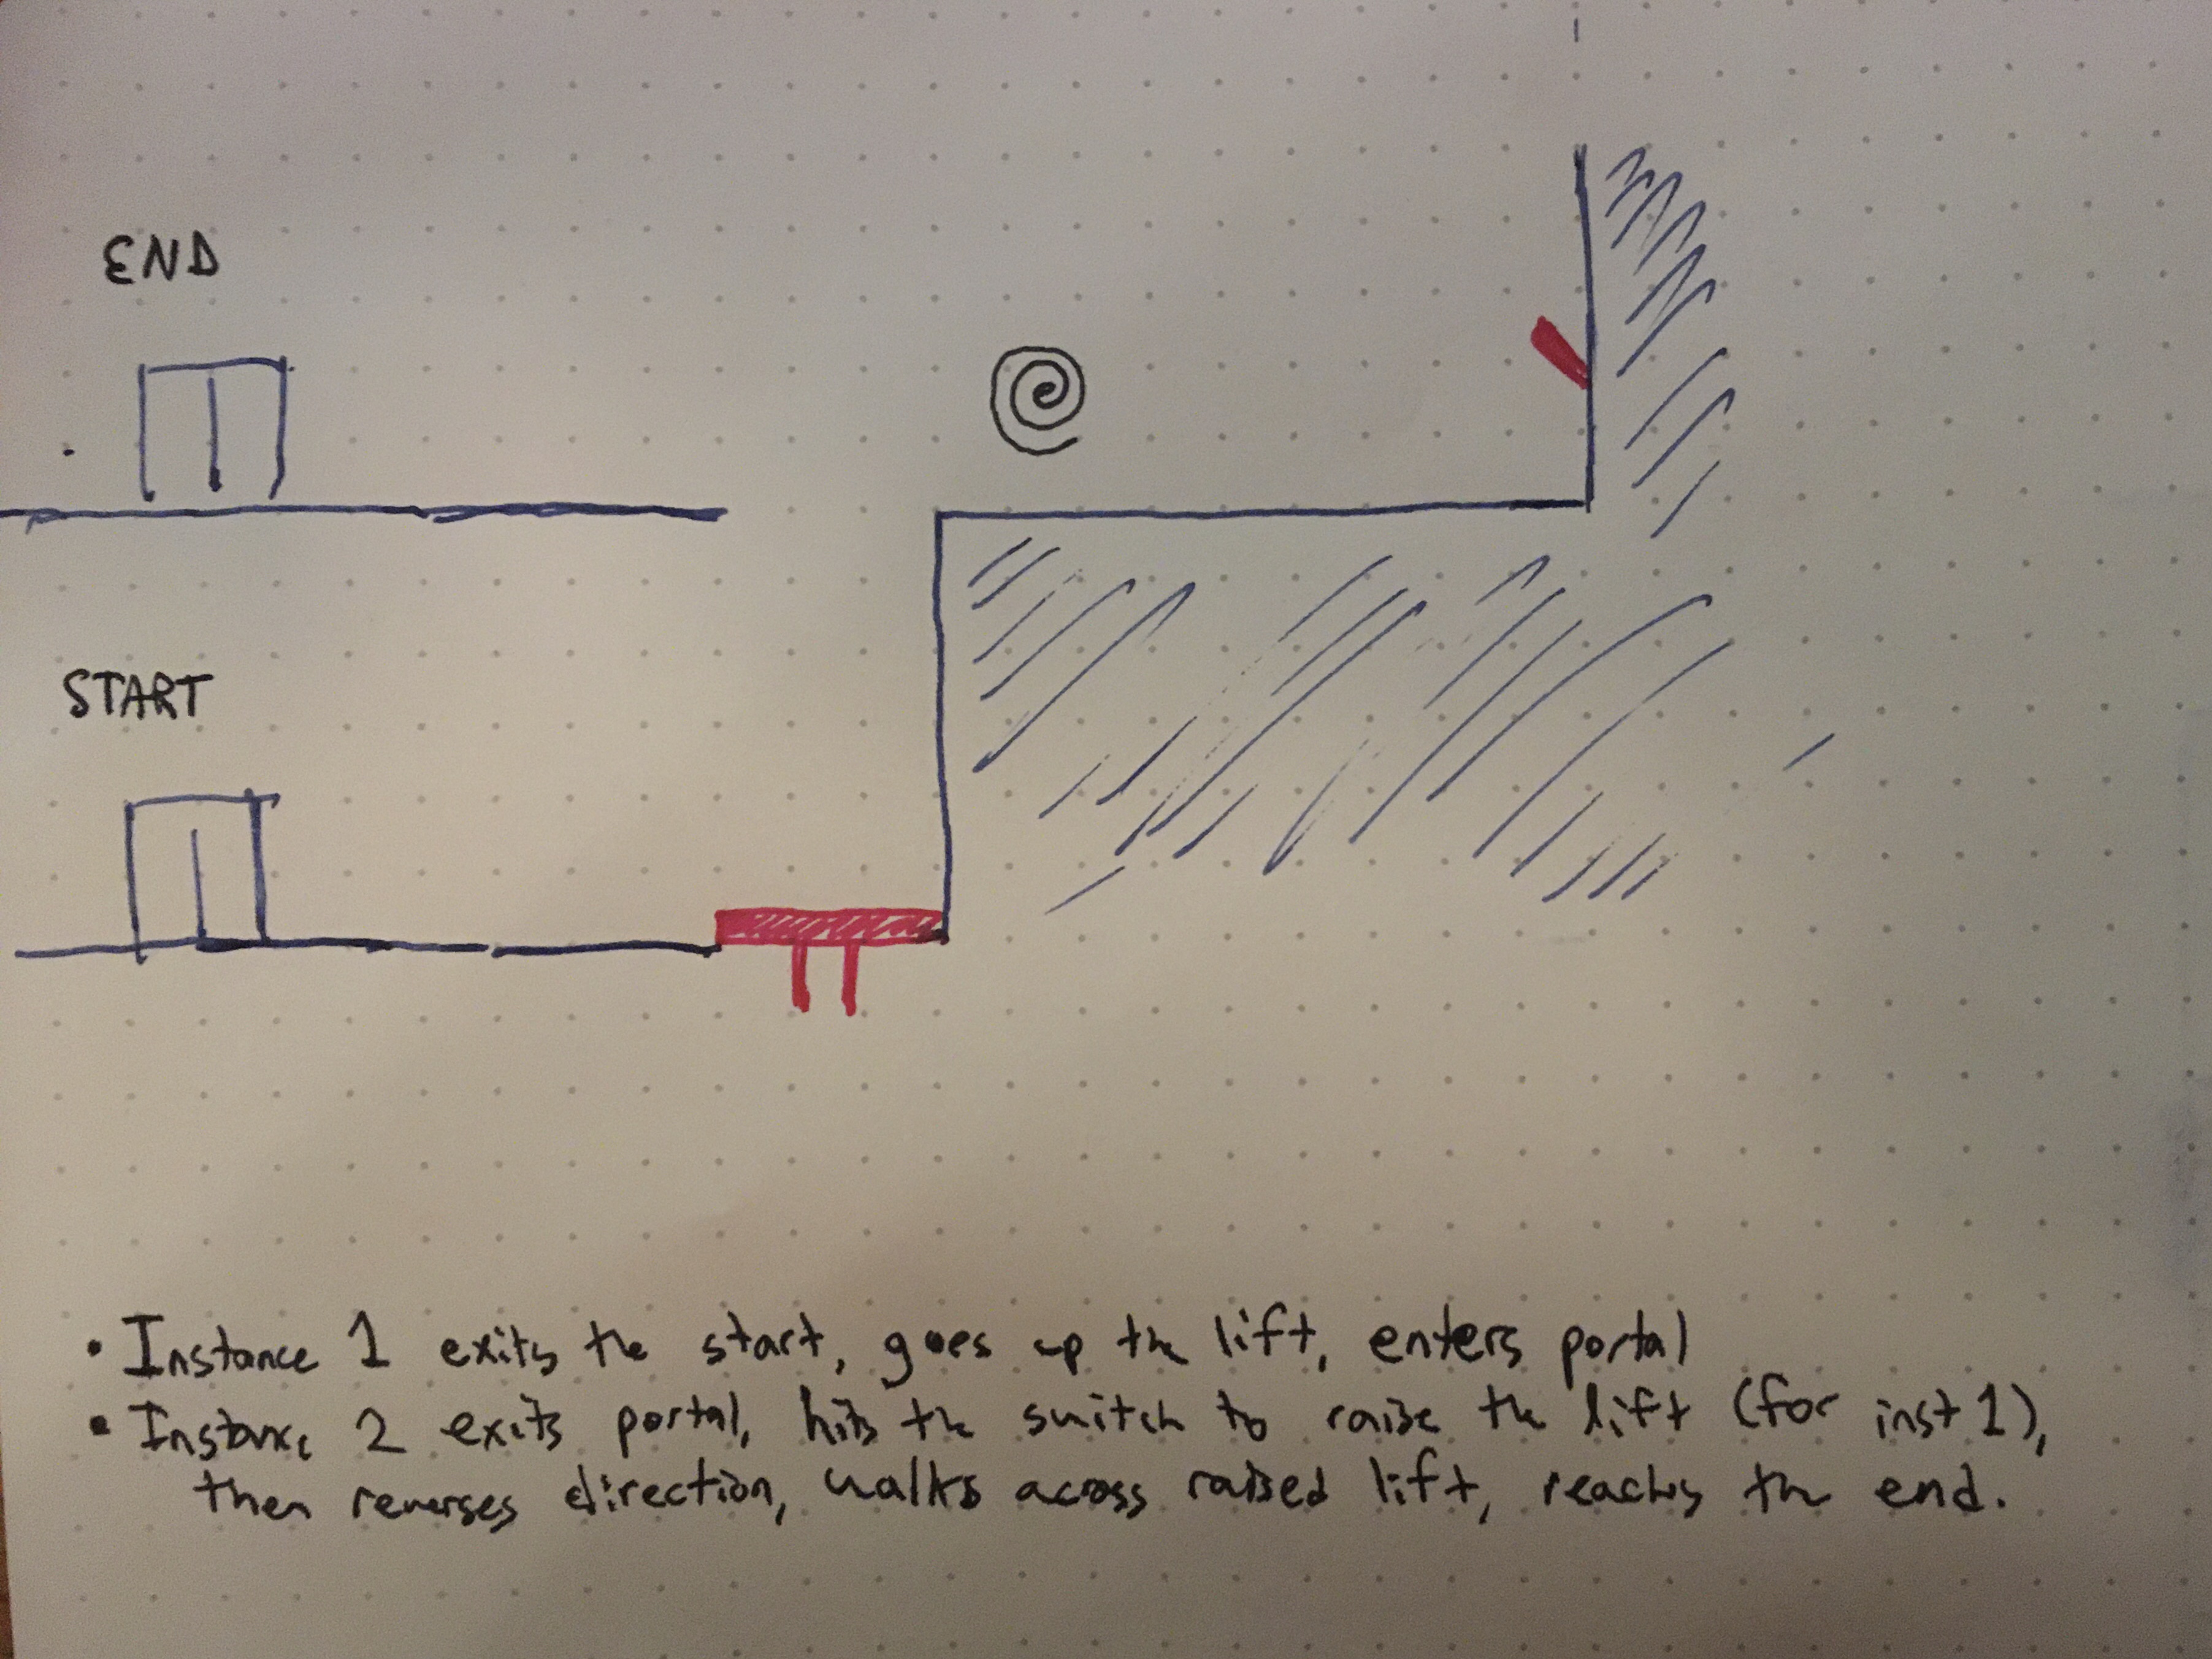 END
START
• Instance 1 exits the start, goes up the lift, enters portal
• Instance 2 exits portal, hits the switch to raise the lift (for inst 1),
then reverses direction, walks across raised lift, reaches the end.